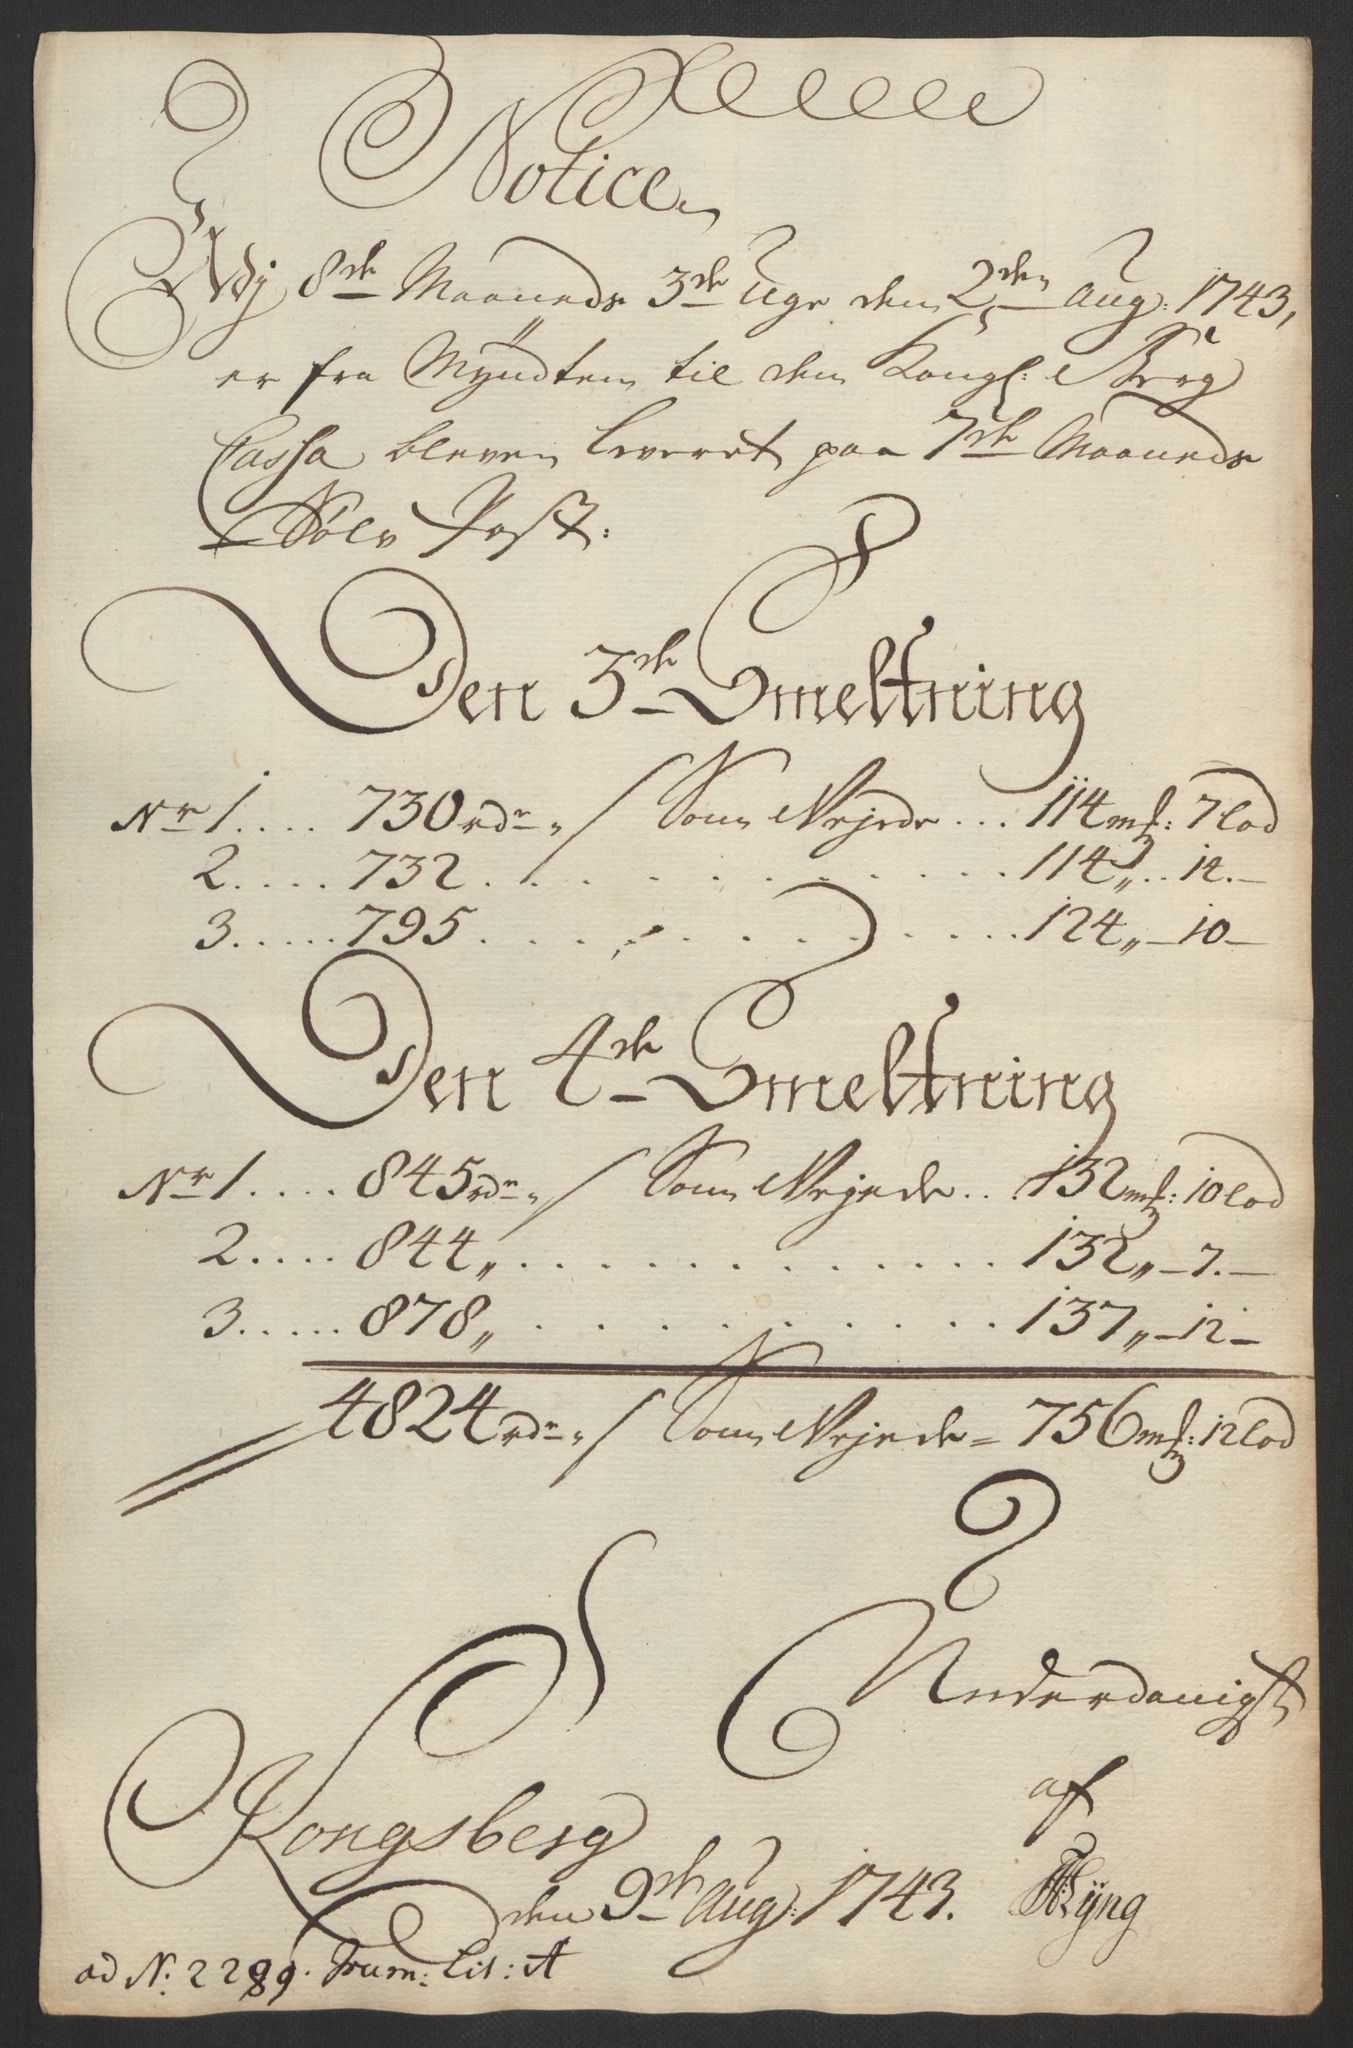 Notice
Udj 8de Maaneds 3de Uge den 2den Aug: 1743,
er fra Mÿndten til den Kongl: Berg
Cassa bleven leveret paa 7de Maaneds
Sølv Post:
Den 3de Smeltning
Nr 1.... 730 rdr„ / Som Vejede ... 114 mk: 7 lod
2..... 732 . . . . . . . . . . . . . 114„ .. 14.—
3..... 795 . . . . . . . . . . . . . 124„—10—
Den 4de Smeltning
Nr 1.... 845 rdr„ / Som Vejede ... 132 mk: 10 lod
2..... 844„ . . . . . . . . . . . . . 132„—7.—
3..... 878„ . . . . . . . . . . . . 137„—12—
4824 rdr„ / Som Vejede = 756 mk: 12 lod
Underdanigst
af
Kongsberg
den 9de Aug: 1743.
ad N: 2289. Journ: Lit: A